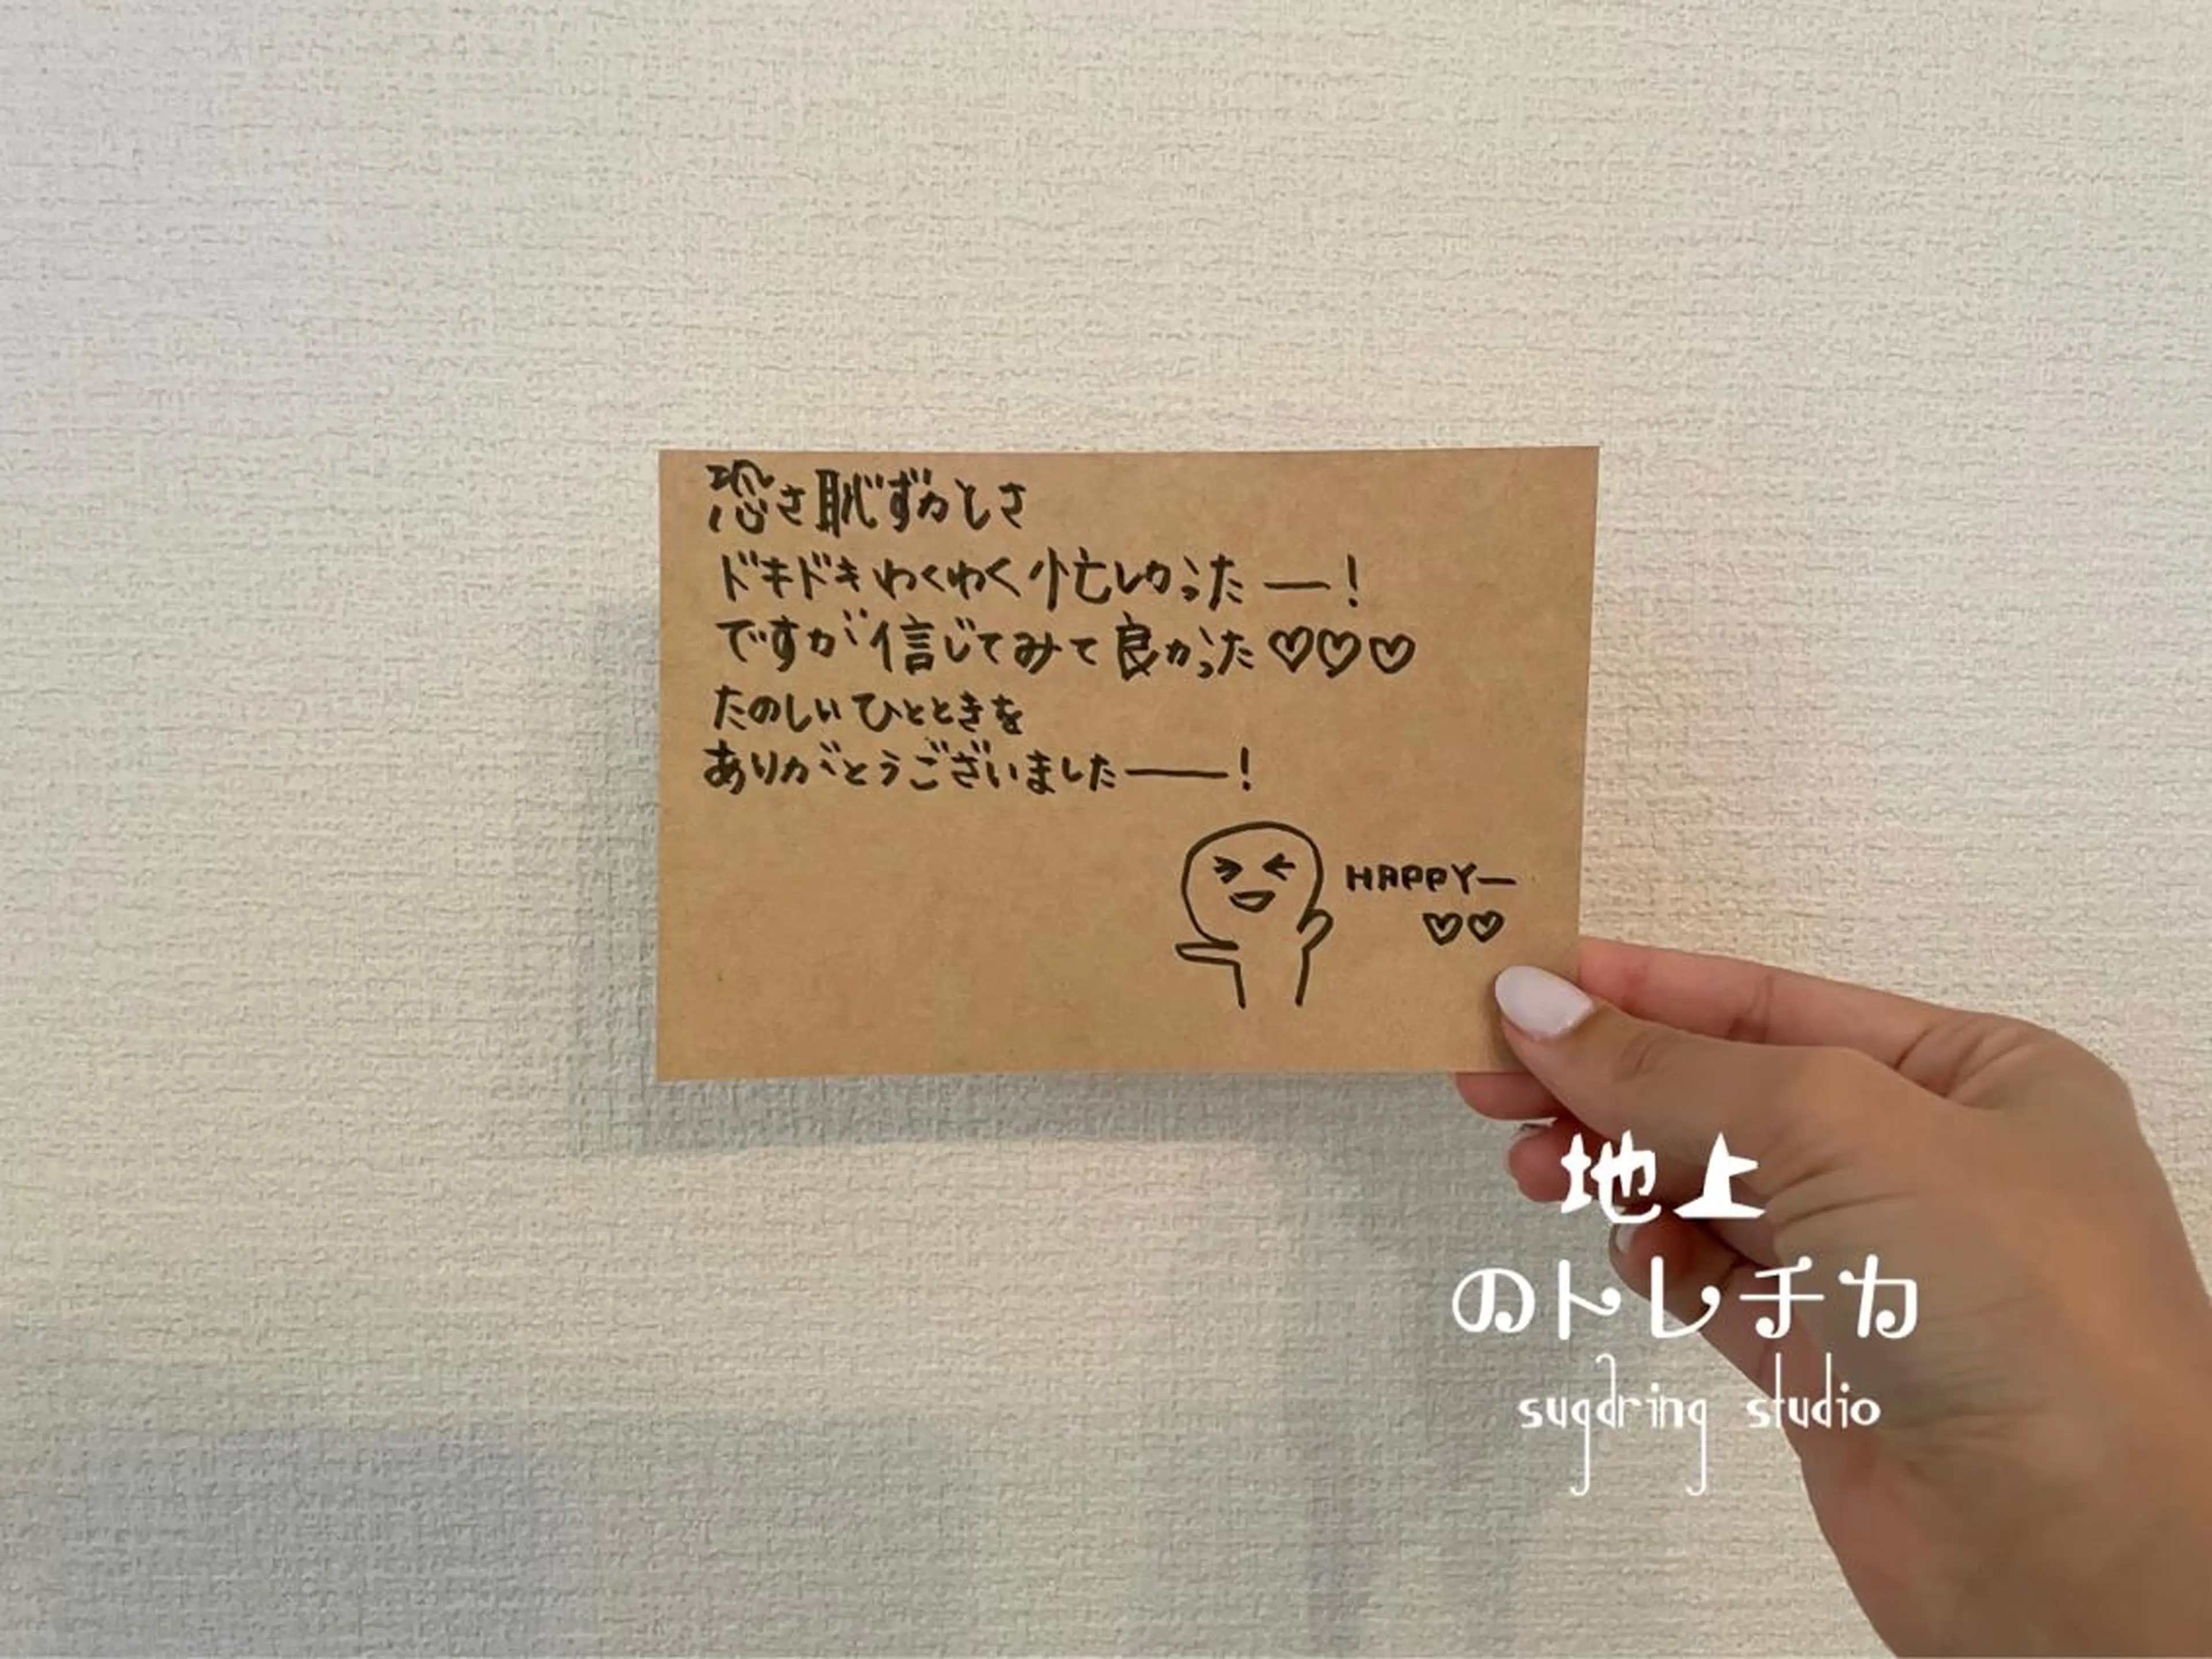 恐さ恥ずかしさ
ドキドキわくわく忙しかったー!
ですが信じてみて良かった♡♡♡
たのしいひとときを
ありがとうございました――!
HAPPYー
♡♡
地上
のトレチカ
sugdring studio